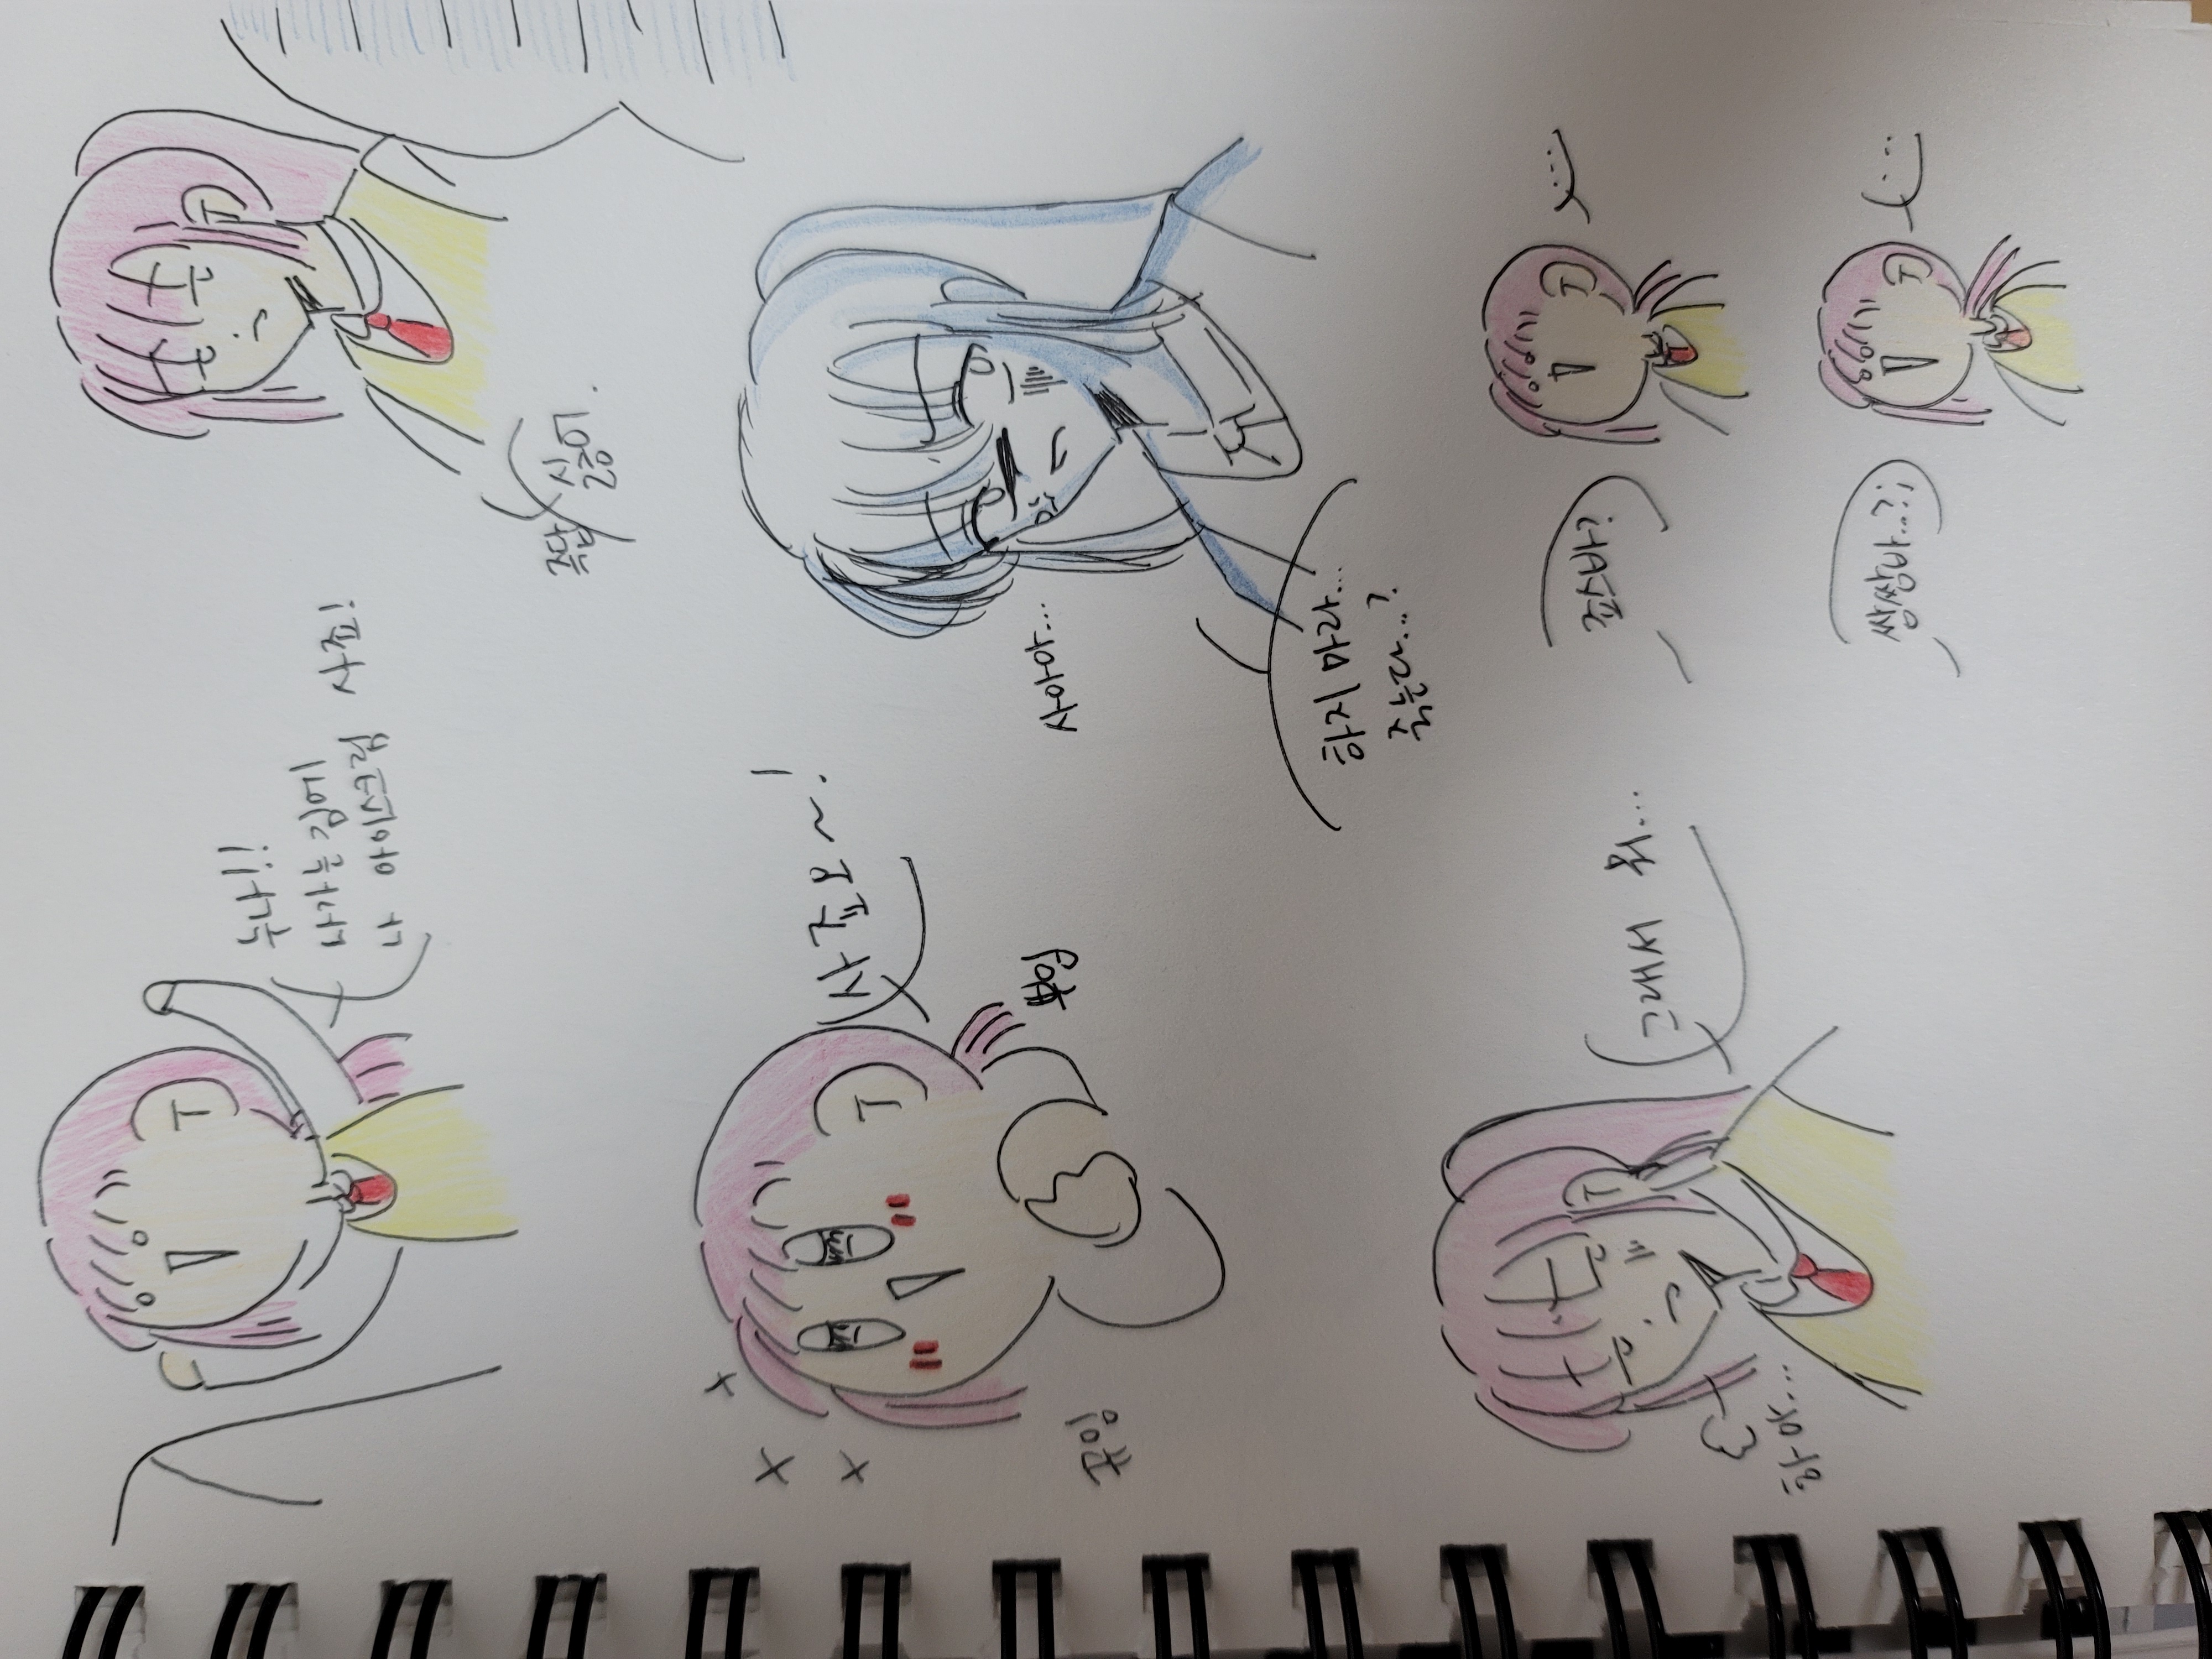 누나!!
나가는 김에
나 아이스크림 사죠!
즉답
싫어.
사죠오~!
뀨잉
뿌잉
사아아...
하지 마라...
죽는다...?
그래서 뭐...
하아...
죠스바?
...
쌍쌍바...?;
...